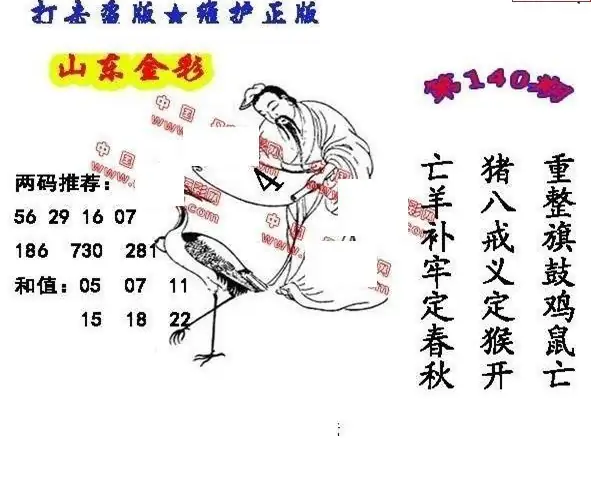 打击盗版★维护正版
山东金彩
第140期
重整旗鼓鸡鼠亡
猪八戒义定猴开
亡羊补牢定春秋
两码推荐：
56 29 16 07
186 730 281
和值：05 07 11
15 18 22
4
中国
www.
中国
www.
彩网
.com
中国
www.
彩网
.com